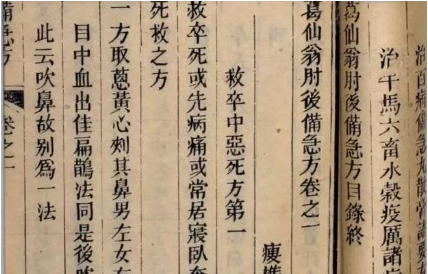 治百病備急丸散膏諸要方
治牛馬六畜水穀疫厲諸病
葛仙翁肘後備急方目錄終
葛仙翁肘後備急方卷之一
救卒中惡死方第一
救卒死或先病痛或常居寢臥奄
死救之方
一方取葱黃心刾其鼻男左女右
目中血出佳扁鵲法同是後
此云吹鼻故别為一法
備急方 卷之一